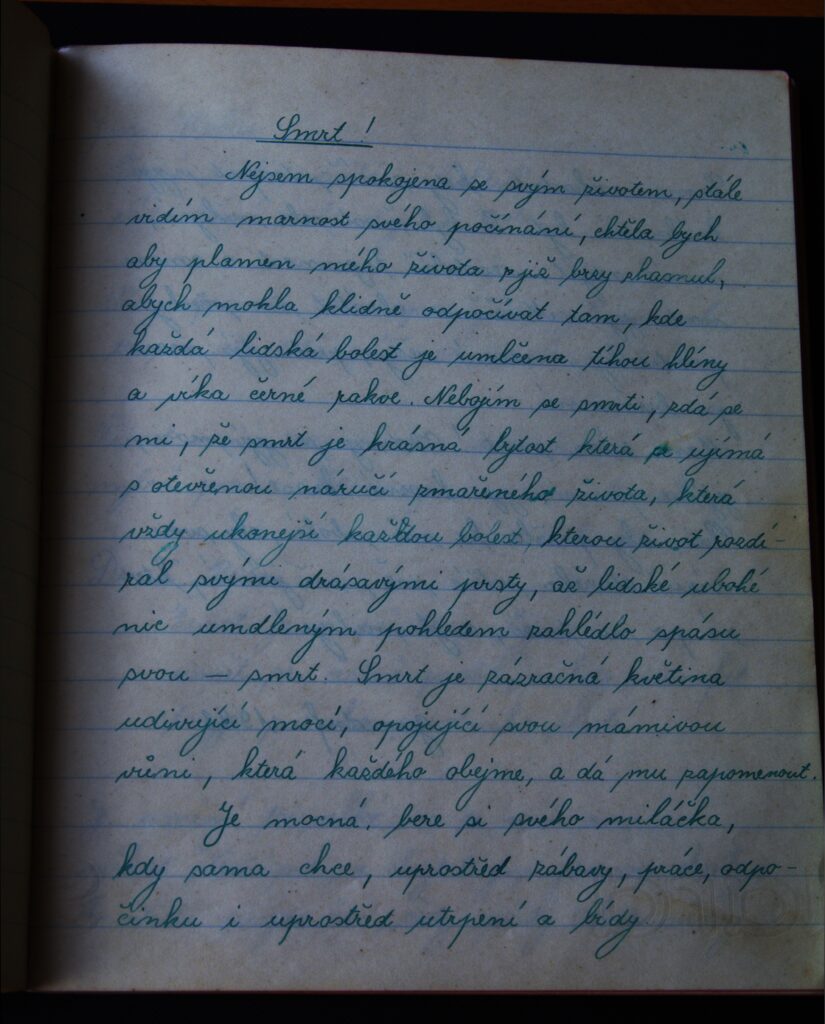 Smrt!
Nejsem spokojena se svým životem, stále
vidím marnost svého počínání, chtěla bych
aby plamen mého života již brzy shasnul,
abych mohla klidně odpočívat tam, kde
každá lidská bolest je umlčena tíhou hlíny
a víka černé rakve. Nebojím se smrti, zdá se
mi, že smrt je krásná bytost která ujímá
s otevřenou náručí zmařeného života, která
vždy ukonejší každou bolest, kterou život rozdí-
ral svými drásavými prsty, až lidské ubohé
nic umdleným pohledem zahlédlo spásu
svou — smrt. Smrt je zázračná květina
udivující mocí, opojující svou mámivou
vůni, která každého obejme, a dá mu zapomenout.
Je mocná, bere si svého miláčka,
kdy sama chce, uprostřed zábavy, práce, odpo-
činku i uprostřed utrpení a bídy